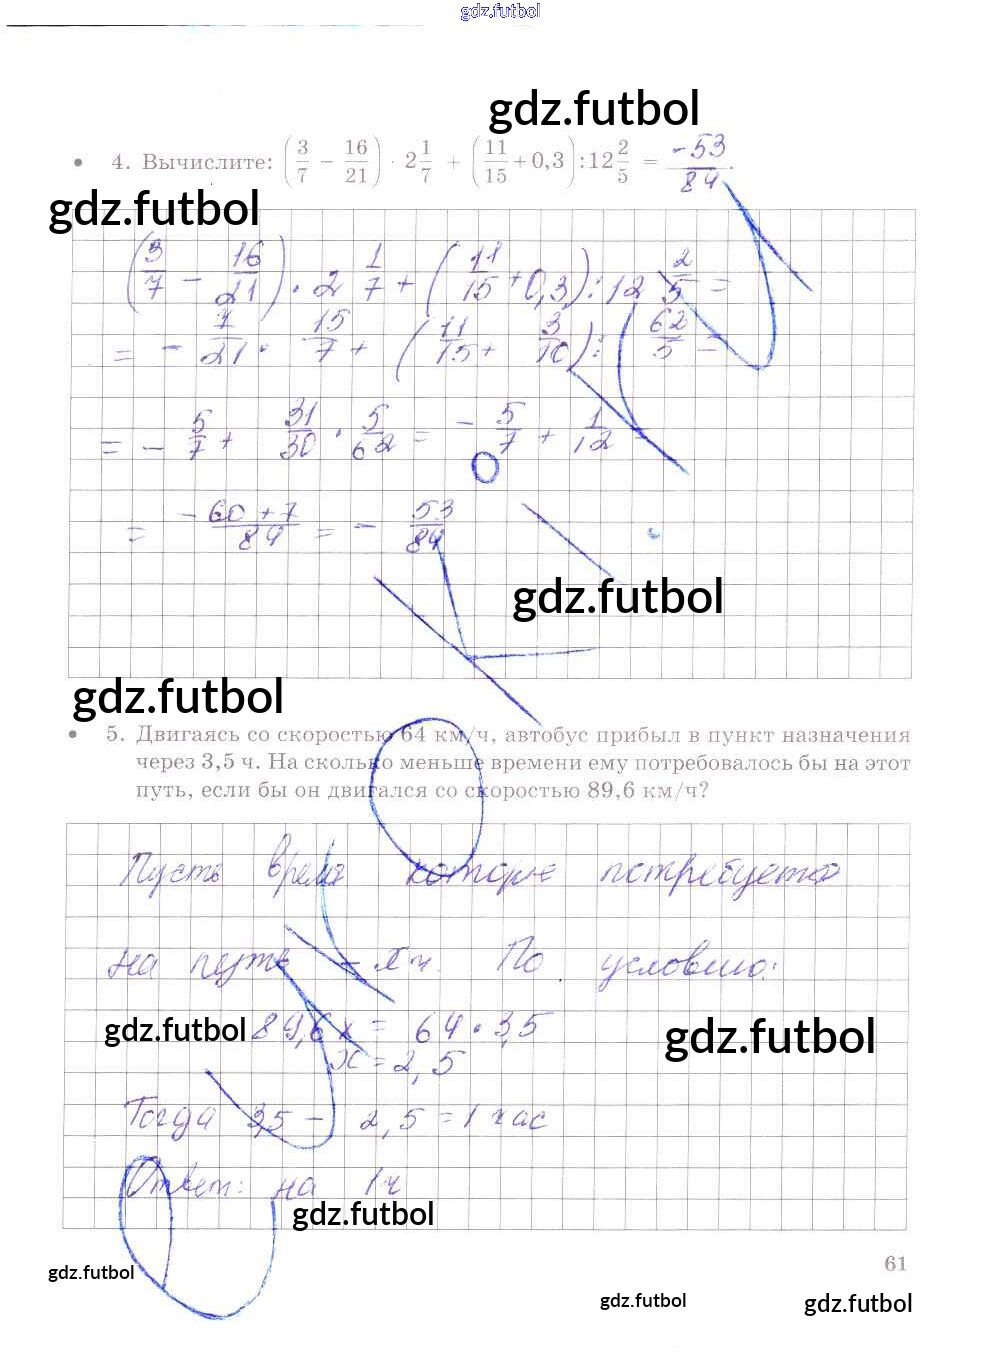 gdz.futbol
gdz.futbol
• 4. Вычислите: (3/7 − 16/21) · 2 1/7 + (11/15 + 0,3) : 12 2/5 = −53/84.
gdz.futbol
(3/7 − 16/21) · 2 1/7 + (11/15 + 0,3) : 12 2/5 =
= − 7/21 · 15/7 + (11/15 + 3/10) : 62/5 =
= − 5/7 + 31/30 · 5/62 = − 5/7 + 1/12 =
= −60 + 7/84 = − 53/84
gdz.futbol
gdz.futbol
• 5. Двигаясь со скоростью 64 км/ч, автобус прибыл в пункт назначения
через 3,5 ч. На сколько меньше времени ему потребовалось бы на этот
путь, если бы он двигался со скоростью 89,6 км/ч?
Пусть время которое потребуется
на путь – x ч. По условию:
gdz.futbol 89,6 x = 64 · 3,5 gdz.futbol
x = 2,5
Тогда 3,5 − 2,5 = 1 час
Ответ: на 1 ч
gdz.futbol
61
gdz.futbol
gdz.futbol
gdz.futbol